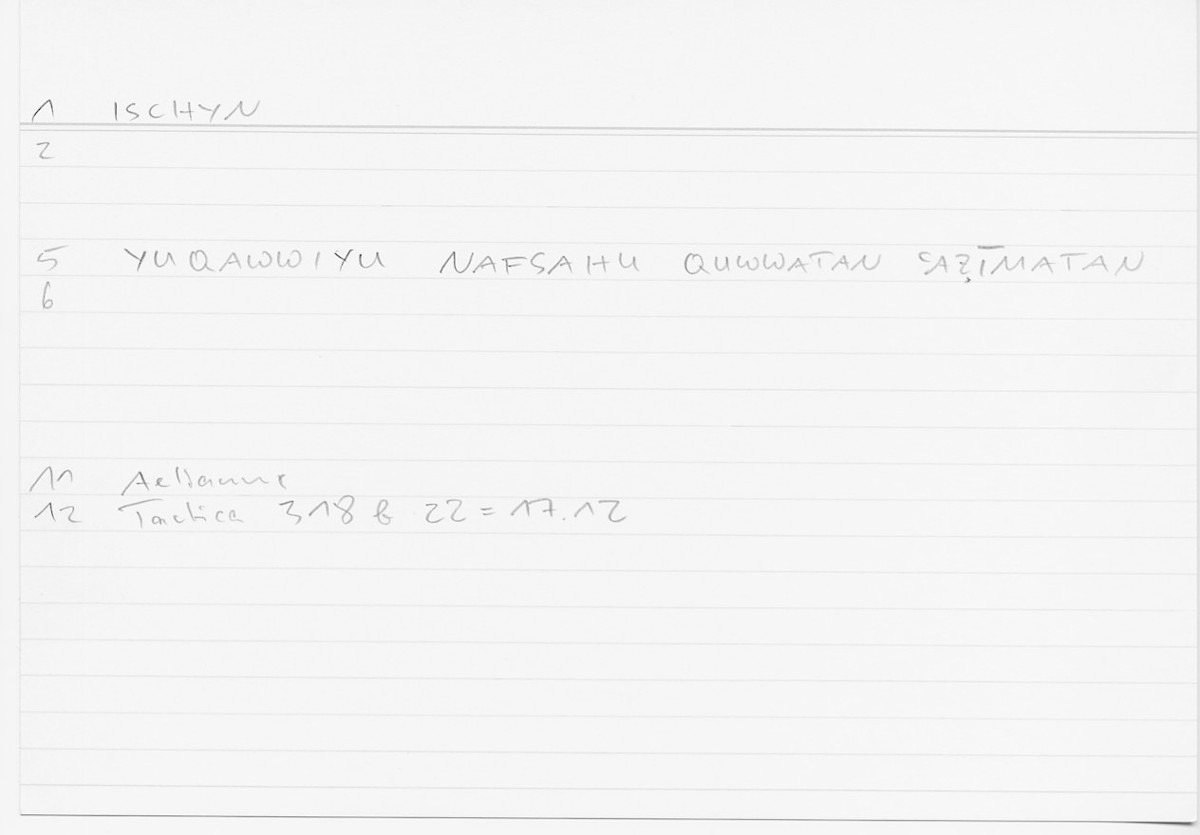 1 ISCHYN
2
5 YUQAWWIYU NAFSAHU QUWWATAN ʿAẒĪMATAN
6
11 Aelianus
12 Tactica 318 b 22 = 17.12